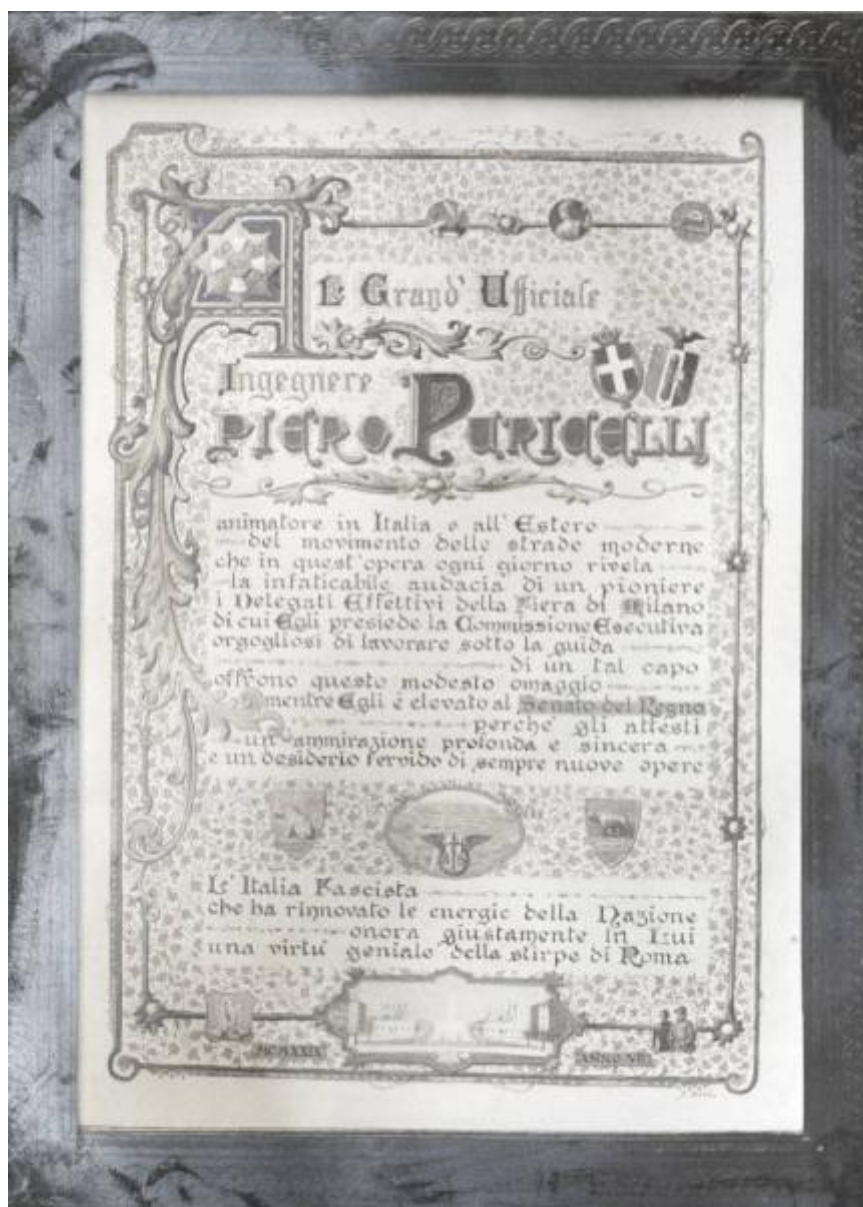 Al Grand' Ufficiale
Ingegnere
PIERO PURICELLI
animatore in Italia e all' Estero
del movimento delle strade moderne
che in quest'opera ogni giorno rivela
la infaticabile audacia di un pioniere
i Delegati Effettivi della Fiera di Milano
di cui Egli presiede la Commissione Esecutiva
orgogliosi di lavorare sotto la guida
di un tal capo
offrono questo modesto omaggio
mentre Egli è elevato al Senato del Regno
perchè gli attesti
un' ammirazione profonda e sincera
e un desiderio fervido di sempre nuove opere
L' Italia Fascista
che ha rinnovato le energie della Nazione
onora giustamente in Lui
una virtù geniale della stirpe di Roma
MCMXXIX ANNO VII